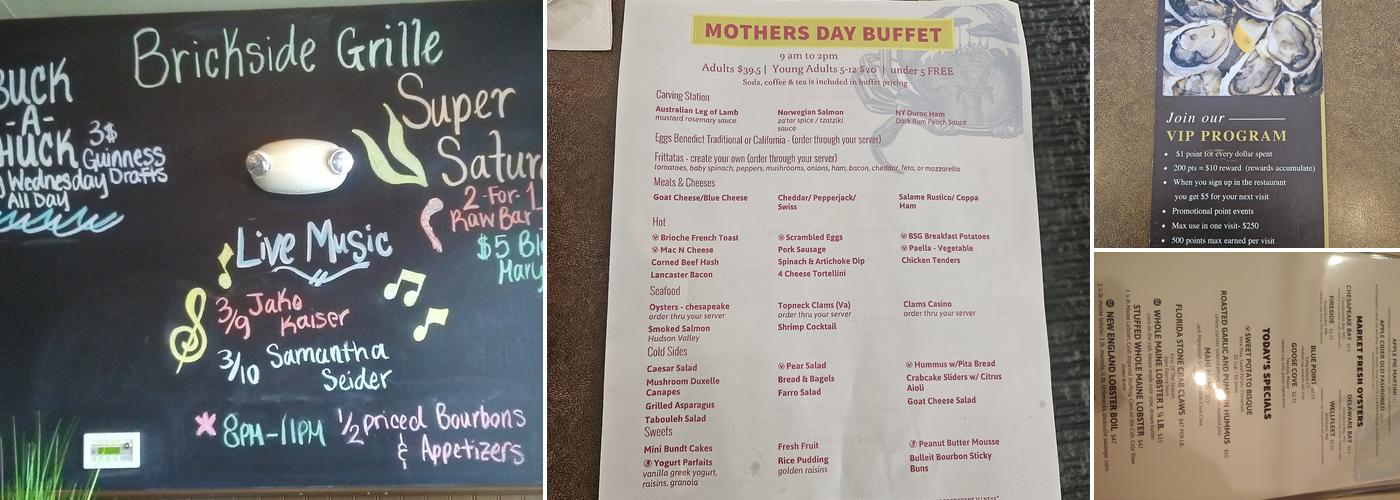 Brickside Grille
BUCK
-A-
HUCK
Wednesday
All Day
3$
Guinness
Drafts
Super
Satur
2-For-1
Raw Bar
$5 Bl
Mary
Live Music
3/9 Jake
Kaiser
3/10 Samantha
Seider
* 8PM-11PM 1/2 priced Bourbons
& Appetizers
MOTHERS DAY BUFFET
9 am to 2pm
Adults $39.5 | Young Adults 5-12 $20 | under 5 FREE
Soda, coffee & tea is included in buffet pricing
Carving Station
Australian Leg of Lamb
mustard rosemary sauce
Norwegian Salmon
za'tar spice / tzatziki
sauce
NY Duroc Ham
Dark Rum Peach Sauce
Eggs Benedict Traditional or California - (order through your server)
Frittatas - create your own (order through your server)
tomatoes, baby spinach, peppers, mushrooms, onions, ham, bacon, cheddar, feta, or mozzarella
Meats & Cheeses
Goat Cheese/Blue Cheese
Cheddar/ Pepperjack/
Swiss
Salame Rustico/ Coppa
Ham
Hot
Brioche French Toast
Mac N Cheese
Corned Beef Hash
Lancaster Bacon
Scrambled Eggs
Pork Sausage
Spinach & Artichoke Dip
4 Cheese Tortellini
BSG Breakfast Potatoes
Paella - Vegetable
Chicken Tenders
Seafood
Oysters - chesapeake
order thru your server
Smoked Salmon
Hudson Valley
Topneck Clams (Va)
order thru your server
Shrimp Cocktail
Clams Casino
order thru your server
Cold Sides
Caesar Salad
Mushroom Duxelle
Canapes
Grilled Asparagus
Tabouleh Salad
Pear Salad
Bread & Bagels
Farro Salad
Hummus w/Pita Bread
Crabcake Sliders w/ Citrus
Aioli
Goat Cheese Salad
Sweets
Mini Bundt Cakes
Yogurt Parfaits
vanilla greek yogurt,
raisins, granola
Fresh Fruit
Rice Pudding
golden raisins
Peanut Butter Mousse
Bulleit Bourbon Sticky
Buns
Join our
VIP PROGRAM
• $1 point for every dollar spent
• 200 pts = $10 reward (rewards accumulate)
• When you sign up in the restaurant
you get $5 for your next visit
• Promotional point events
• Max use in one visit- $250
• 500 points max earned per visit
APPLE CIDER OLD FASHIONED
MARKET FRESH OYSTERS
CHESAPEAKE BAY
DELAWARE BAY
FIRESIDE
WELLFLEET
BLUE POINT
GOOSE COVE
TODAY'S SPECIALS
SWEET POTATO BISQUE
ROASTED GARLIC AND PUMPKIN HUMMUS
MAHI
FLORIDA STONE CRAB CLAWS
WHOLE MAINE LOBSTER 1 ¼ LB.
STUFFED WHOLE MAINE LOBSTER $47
NEW ENGLAND LOBSTER BOIL $47